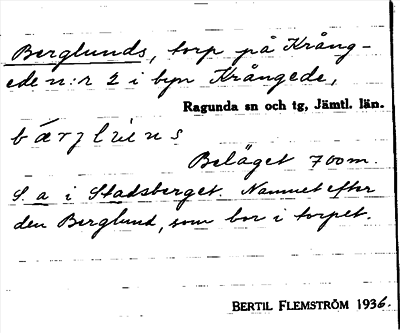 Berglunds, torp på Krång-
ede n:r 2 i byn Krångede,
Ragunda sn och tg, Jämtl. län.
Beläget 700 m.
S. a i Stadsberget. Namnet efter
den Berglund, som bor i torpet.
BERTIL FLEMSTRÖM 1936.